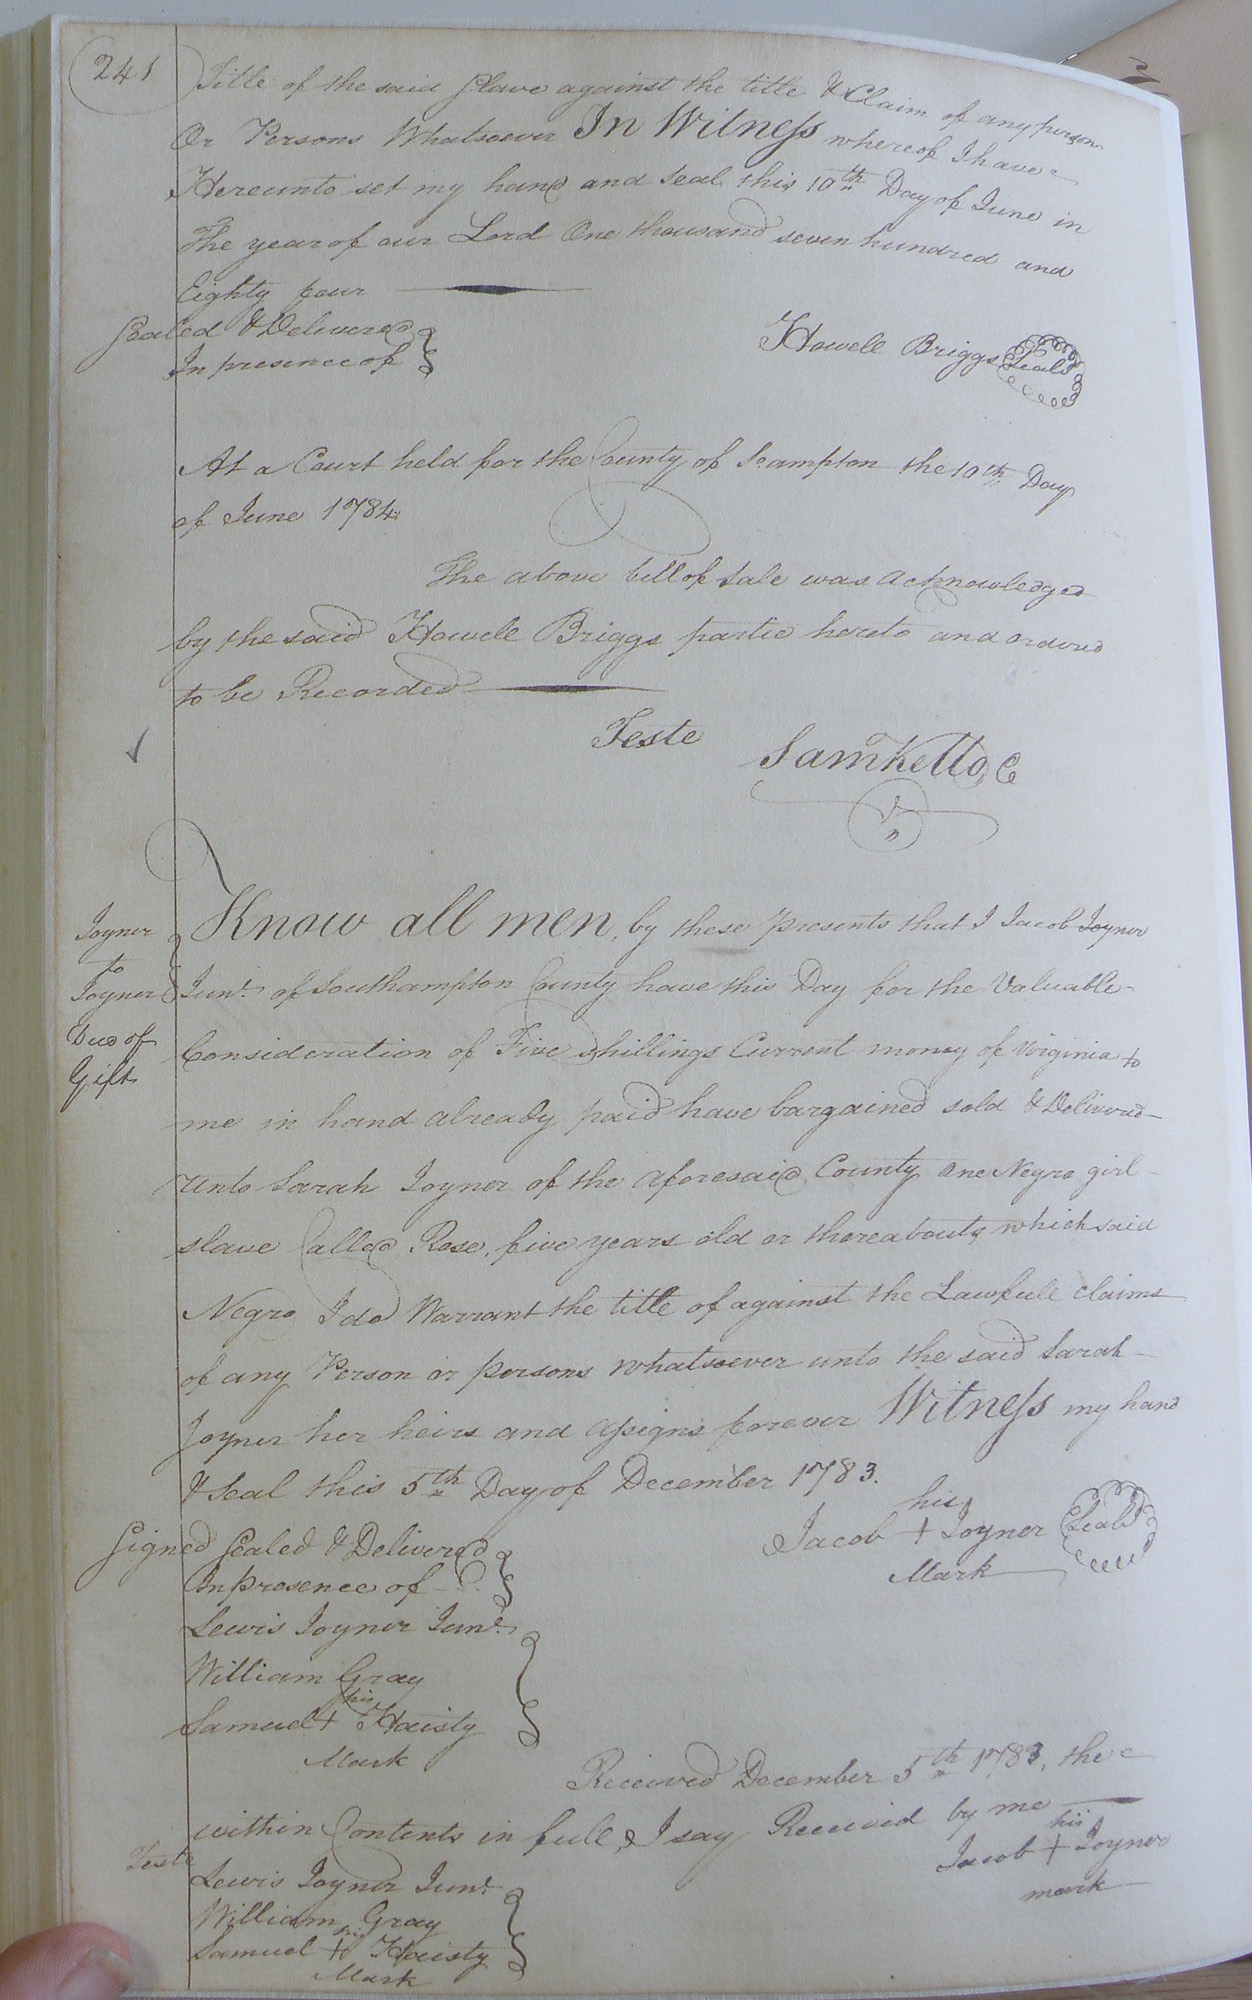 241
Title of the said Slave against the title & Claim of any person
Or Persons Whatsoever In Witness whereof I have
Hereunto set my hand and Seal this 10th Day of June in
The year of our Lord One thousand seven hundred and
Eighty four
Sealed & Delivered
In presence of
Howell Briggs Seal
At a Court held for the County of Scampton the 10th Day
of June 1784
The above bill of Sale was Acknowledged
by the said Howell Briggs partie hereto and ordered
to be Recorded
Teste
Sam Kello C
Joyner
to
Joyner
Deed of
Gift
Know all men, by these Presents that I Jacob Joyner
Junr. of Southampton County have this Day for the Valuable
Consideration of Five Shillings Current money of Virginia to
me in hand already paid have bargained sold & Delivered
Unto Sarah Joyner of the Aforesaid County One Negro girl
slave Called Rose, five years old or thereabouts which said
Negro I do Warrant the title of against the Lawfull claims
of any Person or persons whatsoever unto the said Sarah
Joyner her heirs and Assigns forever Witness my hand
& Seal this 5th Day of December 1783.
his
Jacob + Joyner Seal
Mark
Signed Sealed & Delivered
In presence of
Lewis Joyner Junr.
William Gray
his
Samuel + Haisty
Mark
Received December 5th 1783, the
within Contents in full, I say Received by me
his
Jacob + Joyner
mark
Teste
Lewis Joyner Junr.
William Gray
his
Samuel + Haisty
Mark